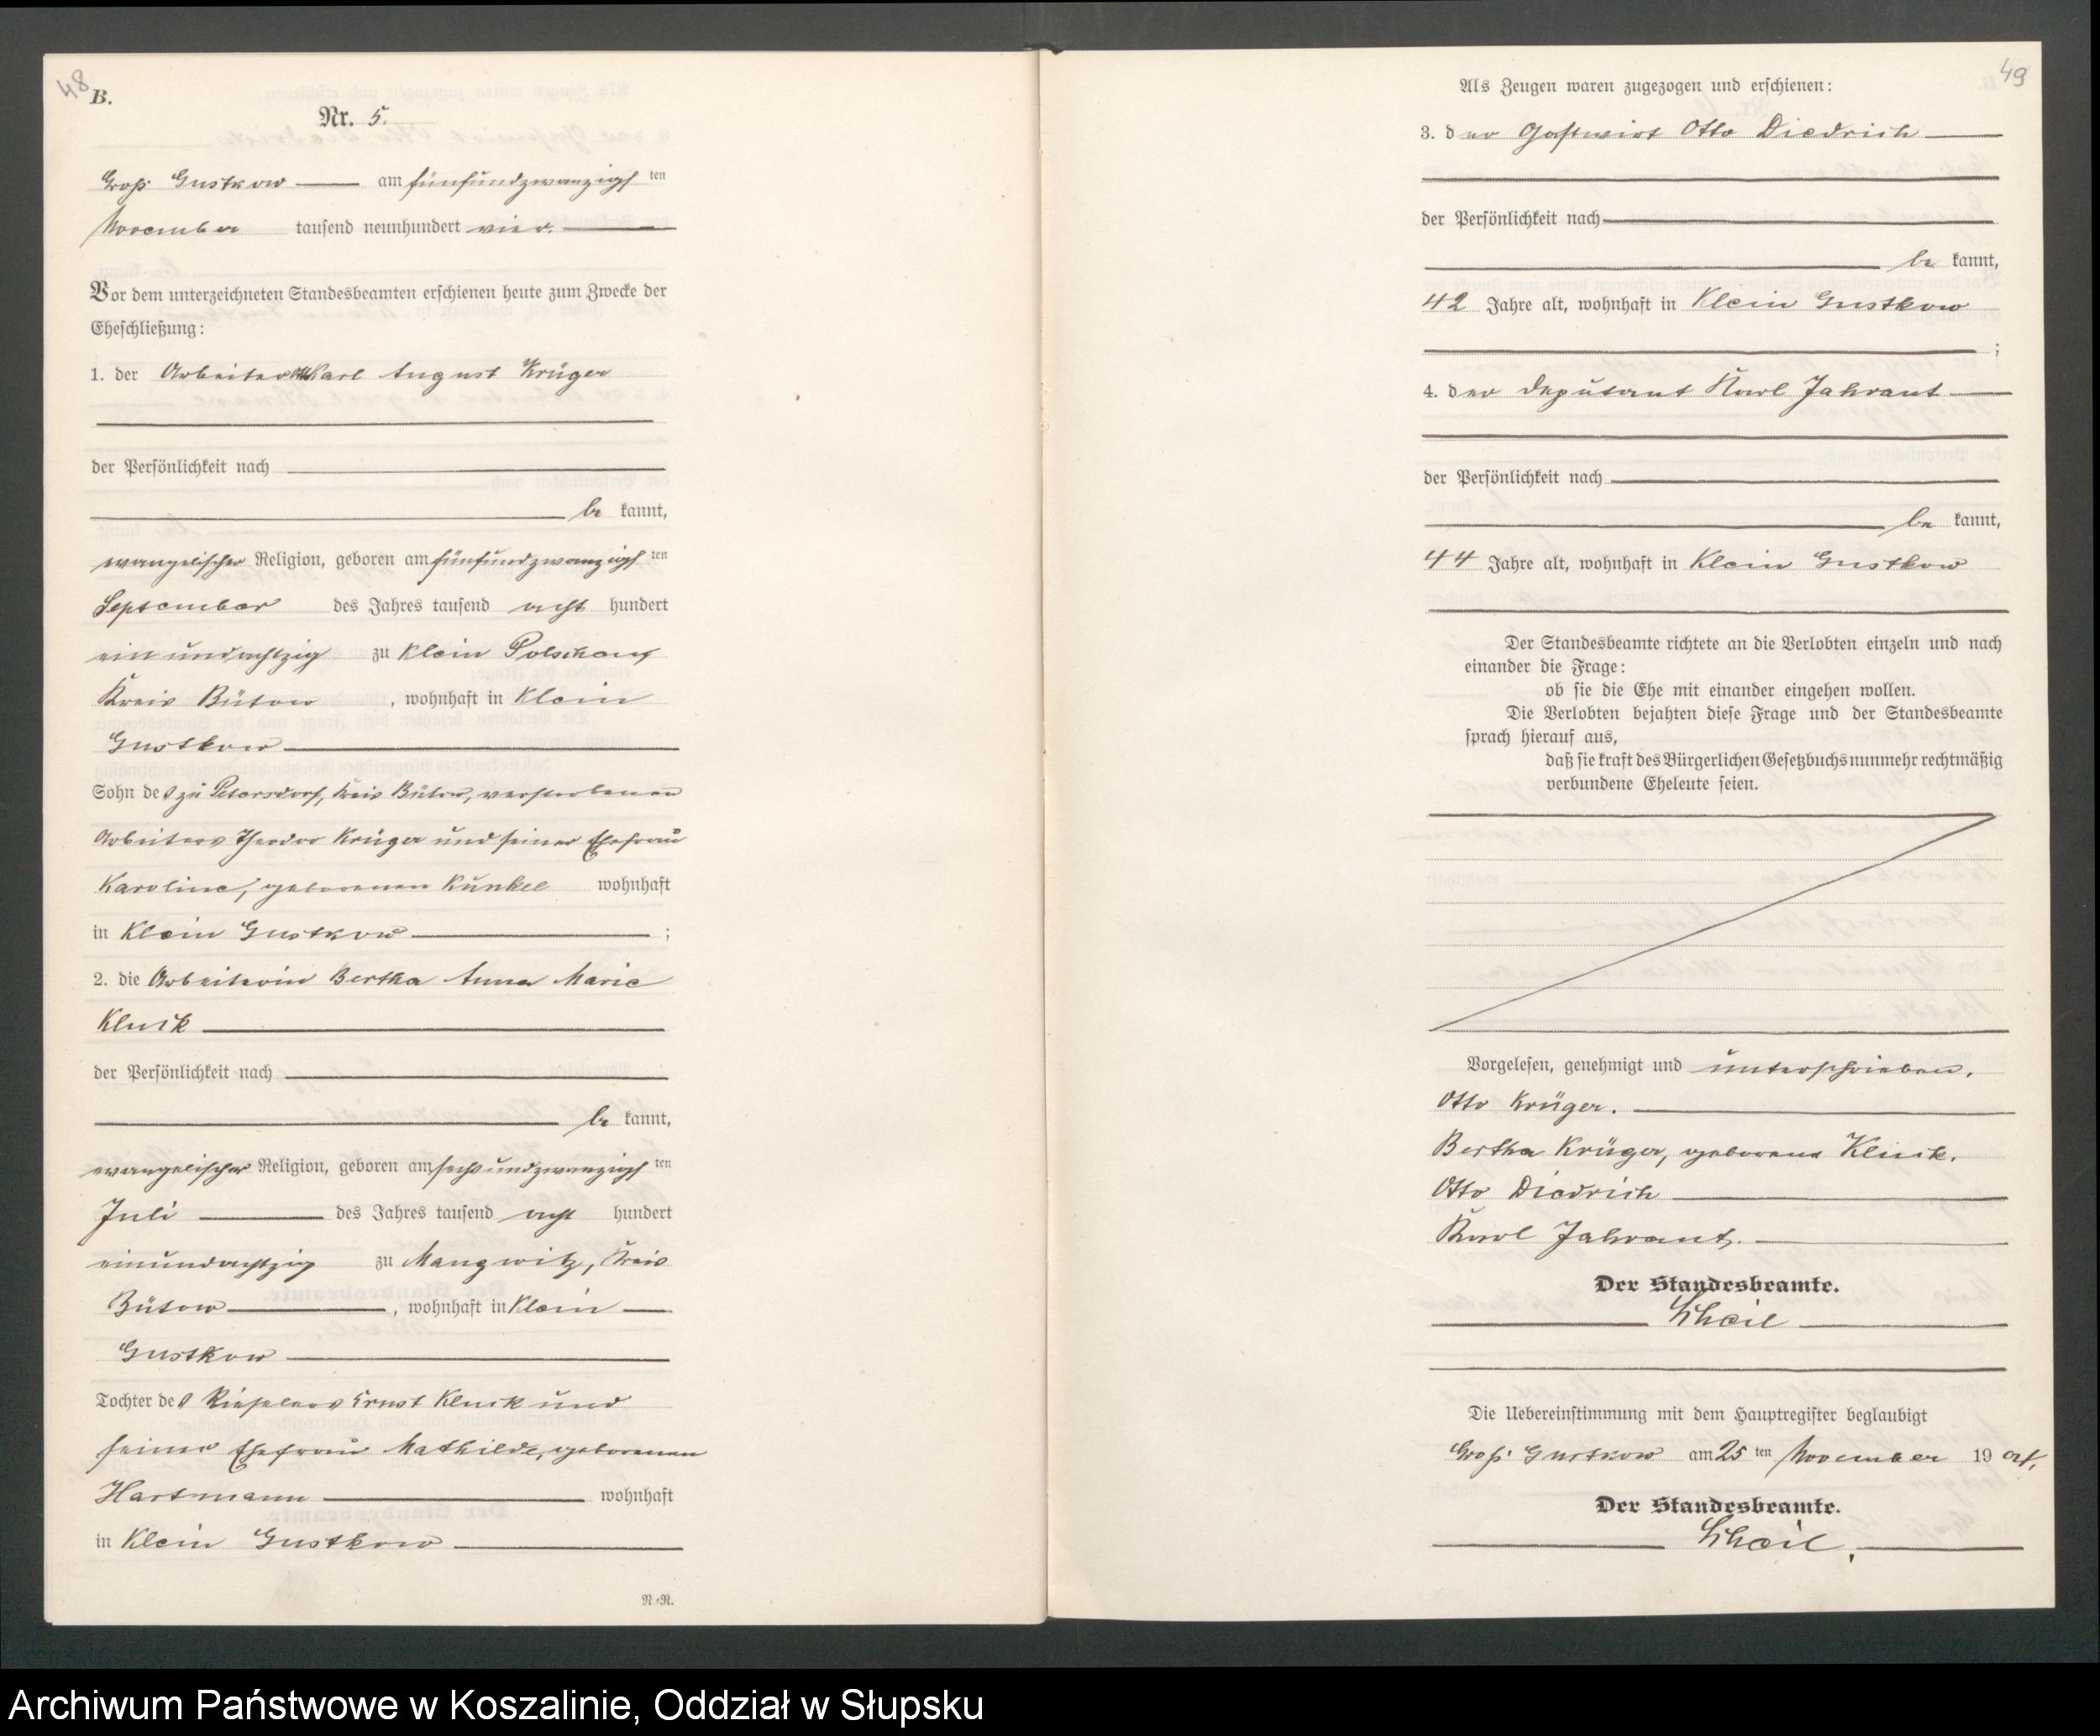 48
B.
Nr. 5.
Groß Gustkow am fünfundzwanzigsten
November tausend neunhundert vier.
Vor dem unterzeichneten Standesbeamten erschienen heute zum Zwecke der
Eheschließung:
1. der Arbeiter Otto Karl August Krüger
der Persönlichkeit nach
be kannt,
evangelischer Religion, geboren am fünfundzwanzigsten
September des Jahres tausend acht hundert
einundachtzig zu Klein
Kreis Bütow, wohnhaft in Klein
Gustkow
Sohn des zu Petersdorf, Kreis Bütow, verstorbenen
Arbeiters Theodor Krüger und seiner Ehefrau
Karoline, geborenen Kunkel wohnhaft
in Klein Gustkow ;
2. die Arbeiterin Bertha Anna Marie
Kluck
der Persönlichkeit nach
be kannt,
evangelischer Religion, geboren am sechsundzwanzigsten
Juli des Jahres tausend acht hundert
einundachtzig zu Mangwitz, Kreis
Bütow, wohnhaft in Klein
Gustkow
Tochter des Ernst Kluck und
seiner Ehefrau Mathilde, geborenen
Hartmann wohnhaft
in Klein Gustkow
N.-R.
49
Als Zeugen waren zugezogen und erschienen:
3. der Gastwirt Otto Diedrich
der Persönlichkeit nach
be kannt,
42 Jahre alt, wohnhaft in Klein Gustkow
;
4. der Deputant Karl Jahrant
der Persönlichkeit nach
be kannt,
44 Jahre alt, wohnhaft in Klein Gustkow
Der Standesbeamte richtete an die Verlobten einzeln und nach
einander die Frage:
ob sie die Ehe mit einander eingehen wollen.
Die Verlobten bejahten diese Frage und der Standesbeamte
sprach hierauf aus,
daß sie kraft des Bürgerlichen Gesetzbuchs nunmehr rechtmäßig
verbundene Eheleute seien.
Vorgelesen, genehmigt und unterschrieben.
Otto Krüger.
Bertha Krüger, geborene Kluck.
Otto Diedrich
Karl Jahrant.
Der Standesbeamte.
Scheil
Die Uebereinstimmung mit dem Hauptregister beglaubigt
Groß Gustkow am 25 ten November 19 04.
Der Standesbeamte.
Scheil.
Archiwum Państwowe w Koszalinie, Oddział w Słupsku